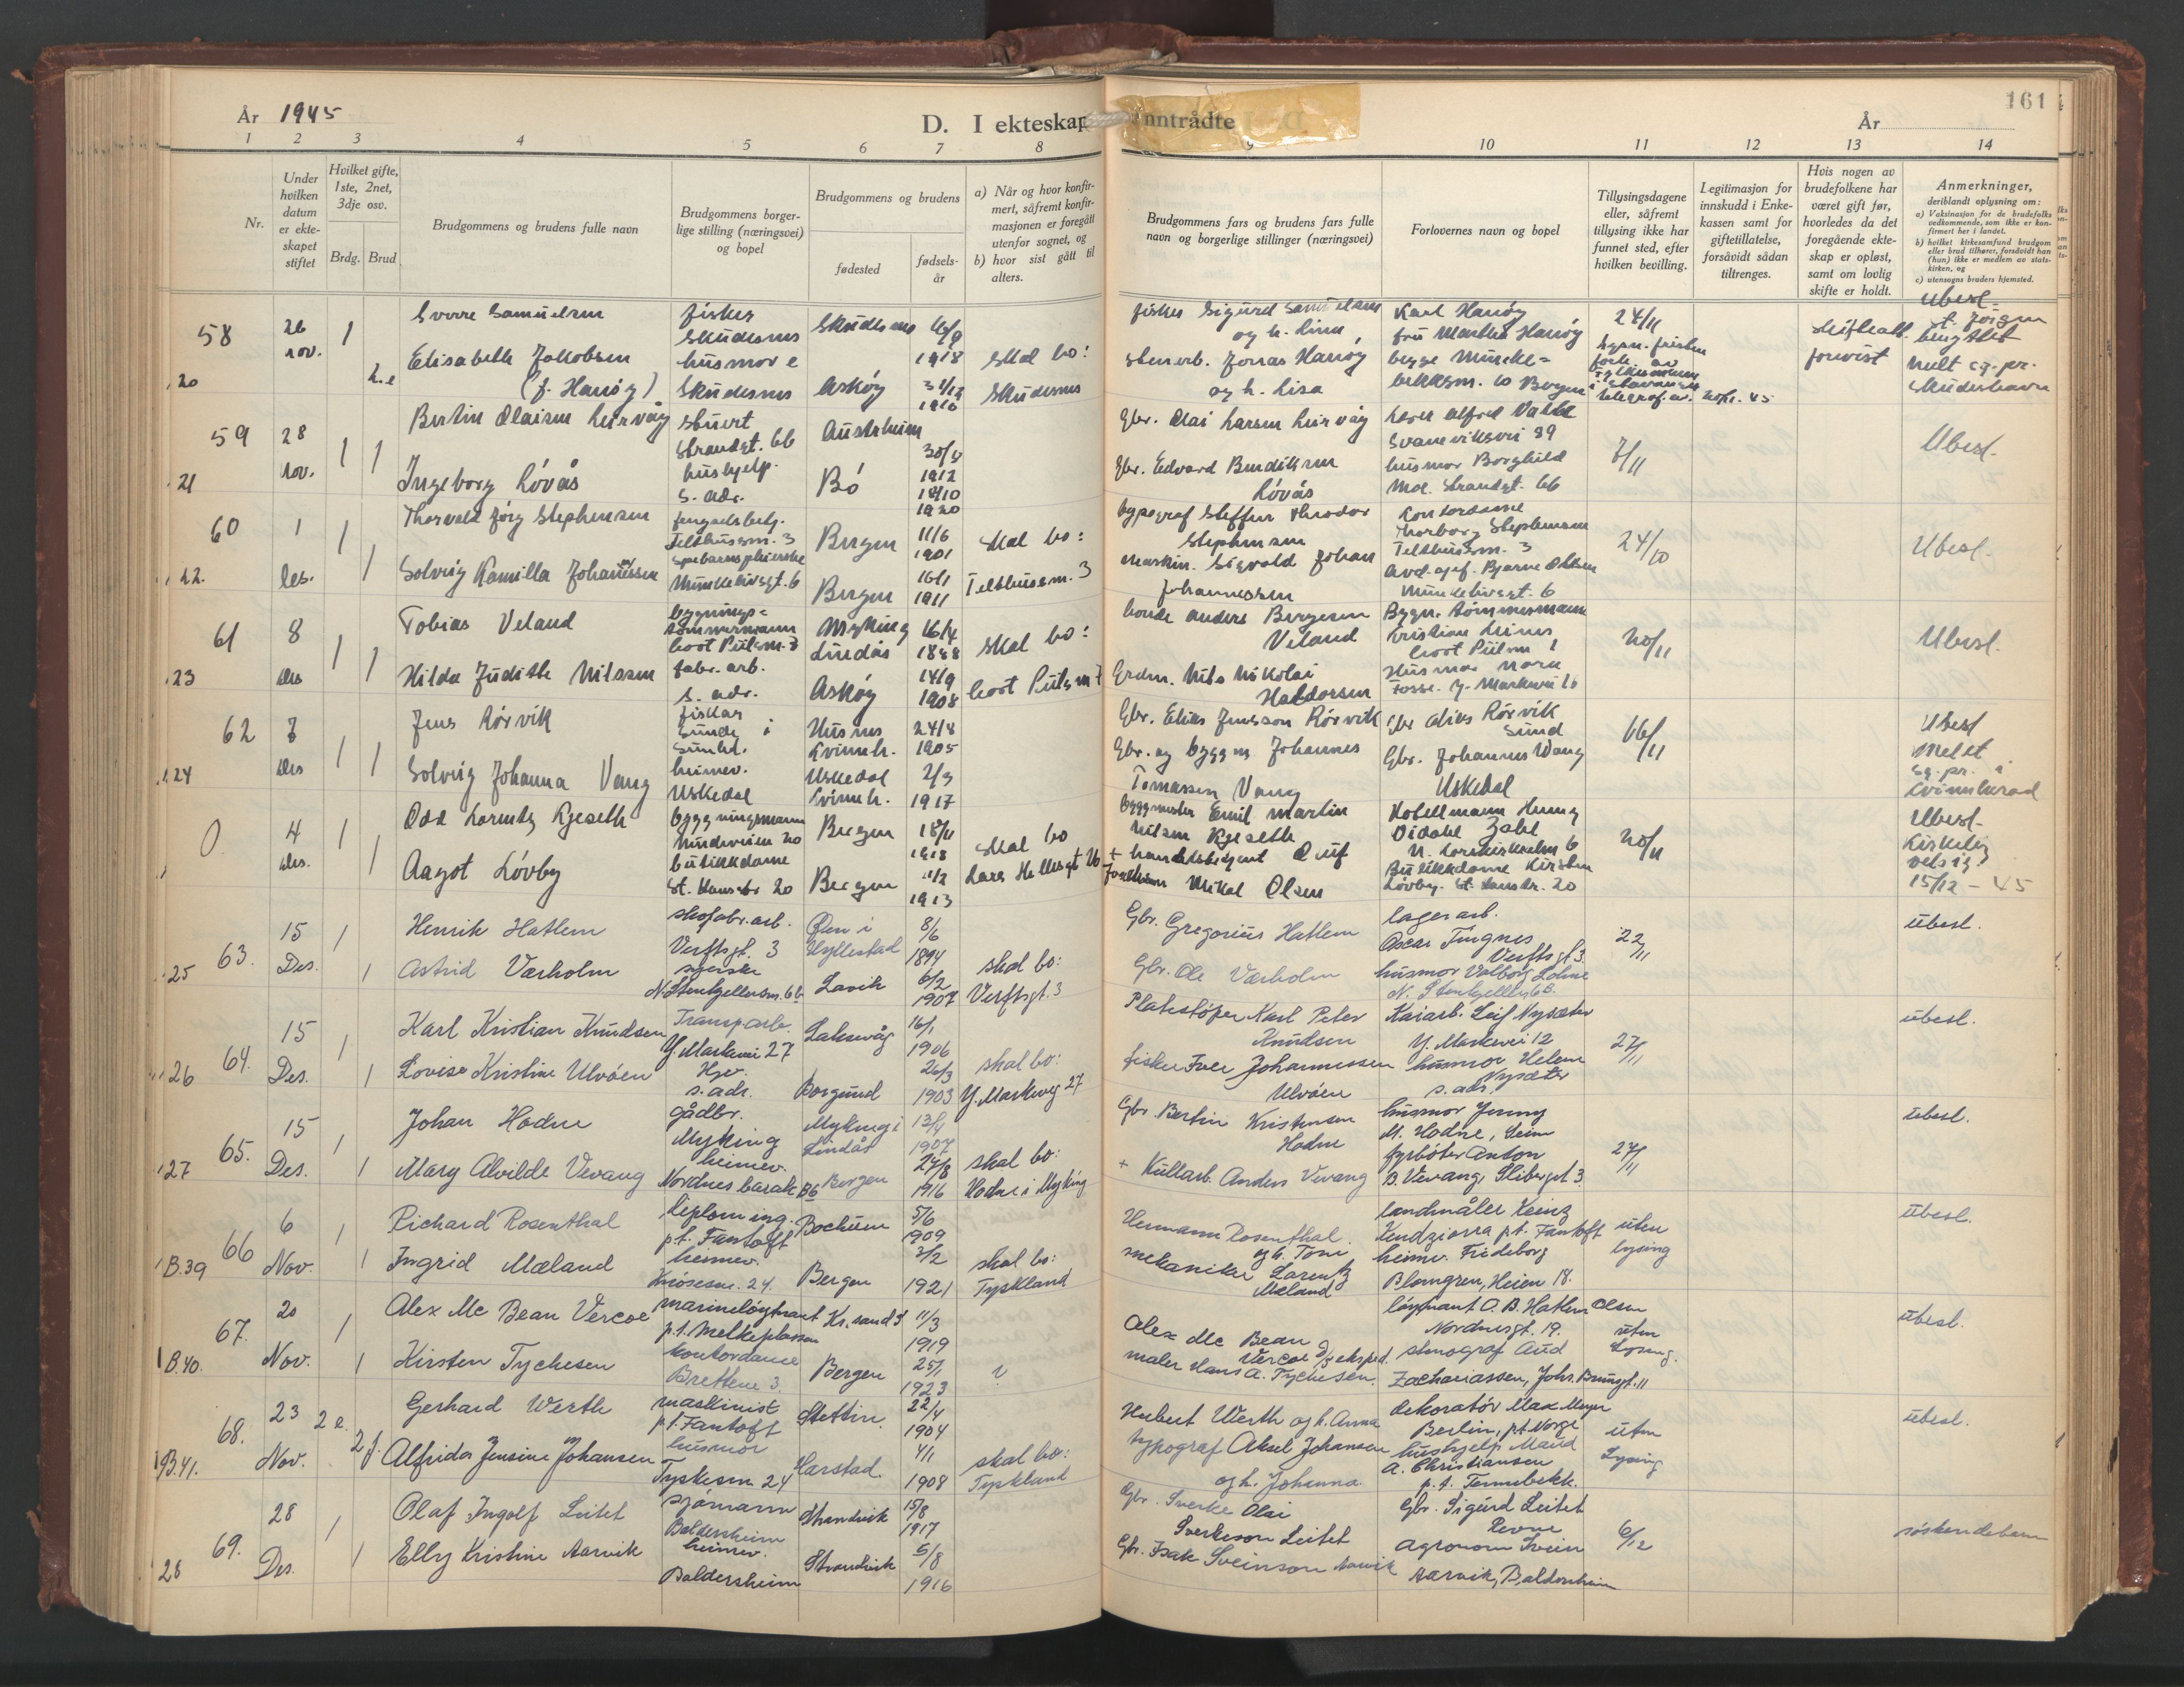 År 1945
D. I ekteskap
inntrådte
År
161
1 2 3 4 5 6 7 8 9 10 11 12 13 14
Nr.
Under hvilken datum er ekteskapet stiftet
Hvilket gifte, 1ste, 2net, 3dje osv.
Brdg. Brud
Brudgommens og brudens fulle navn
Brudgommens borgerlige stilling (næringsvei) og bopel
Brudgommens og brudens
fødested
fødselsår
a) Når og hvor konfirmert, såfremt konfirmasjonen er foregått utenfor sognet, og
b) hvor sist gått til alters.
Brudgommens fars og brudens fars fulle navn og borgerlige stillinger (næringsvei)
Forlovernes navn og bopel
Tillysingsdagene eller, såfremt tillysing ikke har funnet sted, efter hvilken bevilling.
Legitimasjon for innskudd i Enkekassen samt for giftetillatelse, forsåvidt sådan tiltrenges.
Hvis nogen av brudefolkene har været gift før, hvorledes da det foregående ekteskap er opløst, samt om lovlig skifte er holdt.
Anmerkninger, deriblandt oplysning om:
a) Vaksinasjon for de brudefolks vedkommende, som ikke er konfirmert her i landet.
b) hvilket kirkesamfund brudgom eller brud tilhører, forsåvidt han (hun) ikke er medlem av statskirken, og
c) utensogns bruders hjemsted.
58 26 nov. 1 Sverre Samuelsen fisker Skudesnes Skudesnes 6/9 1918
fisker Sigurd Samuelsen og h. Lina Karl Hanøy 24/11 Ubesl.
20 2.e Elisabeth Jakobsen (f. Hanøy) husmor e Skudesnes Askøy 1910 skal bo: Skudesnes
stenarb. Jonas Hanøy og h. Lisa fru Martha Hanøy begge Munkebekksm. 10 Bergen
59 28 nov. 1 1 Bertin Olaisen Leirvåg stuert Strandgt. 66 Austrheim 30/4 1912
Gbr. Olai Larsen Leirvåg Svaneviksvei 89 7/11 Ubesl.
21 Ingeborg Løvås hushjelp. s. adr. Bø 1920
Gbr. Edvard Bendiksen Løvås husmor Borghild Moe. Strandgt. 66
60 1 des. 1 1 Thorvald Jørg Stephensen fengselsbetj. Telthussm. 3 Bergen 11/6 1901 skal bo:
typograf Steffen Theodor Stephensen kontordame Thorborg Stephensen Telthussm. 3 24/10 Ubesl.
22. Solveig Kamilla Johannessen Munkebivsgt. 6 Bergen 16/1 1911 Telthussm. 3
maskin. Sigvald Johan Johannessen Bjarne Olsen
61 8 des 1 1 Tobias Veland bygningstømmermann Myking Lindås 16/4 1888 skal bo:
bonde Anders Bergesen Veland Bygn. tømmermann Kristian Leines 20/11 Ubesl.
23 Hilda Judith Nilssen fabr. arb. s. adr. Askøy 14/9 1908
Nils Nikolai Haldorsen Husmor Nora Fosse. Y. Markevei 16
62 8 des 1 1 Jens Rørvik fisker Sunde i Sunnh. Husnes Kvinnh. 24/8 1905
Gbr. Elias Jensson Rørvik Gbr Alias Rørvik Sund 16/11 Ubesl
24 Solveig Johanna Vang heimev. Uskedal Uskedal Kvinnh. 2/3 1917
Gbr. og byggm Johannes Tomassen Vang Gbr. Johannes Vang Uskedal
0. 4 des. 1 1 Odd Lorentz Kjeseth bygningsmann Bergen 18/11 1918 skal bo
byggmester Emil Martin Nilsen Kjeseth 20/11 Ubesl. Kirkelig velsig 15/12 - 45
Aagot Løvby butikkdame St. Hansstr 20 Bergen 11/2 1913
Mikal Olsen Butikkdame Kirsten Løvby. St. Hansstr. 20
63. 15 Des. 1 1 Henrik Hatlem skofabr. arb. Verftsgt. 3 Øen i Hyllestad 8/6 1894
Gbr. Gregorius Hatlem lagerarb. Oscar Tingnes Verftsgt 3. 22/11 übesl.
25 Astrid Værholm syerske N. Stenkjellersm. 6b Lavik 6/2 1907 skal bo: Verftsgt. 3
Gbr. Ole Værholm husmor Valborg Lohne N. Stenkjellersm 6B.
64. 15 Des. 1 1 Karl Kristian Knudsen Transp.arb. Y. Markevei 27 Laksevåg 16/1 1906
Plateslager Karl Peter Knudsen Kaiarb. Leif Nysæter Y. Markevei 12 27/11 übesl.
26 Lovise Kristine Ulvøen Hjv. s. adr. Borgund 26/3 1903 skal bo: Y. Markeveg 27
fisker Iver Johannessen Ulvøen husmor Helene Nysæter s. adr.
65. 15 Des. 1 1 Johan Hodne gårdbr. Myking Myking i Lindås 13/4 1907
Gbr. Bertin Kristensen Hodne husmor Jenny M. Hodne, Seim 27/11 übesl.
27 Mary Alvilde Vevang heimev. Nordnes barak B6 Bergen 27/8 1916 skal bo: Hodne i Myking
+ Kullarb. Anders Vevang fyrbøter Anton B. Vevang, Slibergt 3.
66 6 Nov. 1 1 Richard Rosenthal diploming. p.t. Fantoft Bochum 5/6 1909
Hermann Rosenthal og h. Toni landmåler Heinz Kendziorra pt. Fantoft uten lysing übesl.
B.39 Ingrid Mæland heimev. Bergen 3/2 1921 skal bo: Tyskland
mekaniker Lorentz Mæland heimev. Frideborg Blomgren, Heien 18.
67. 20 Nov. 1 1 Alex Mc Bean Vercoe marineløytnant p.t. Melkeplassen Kr. sand S 11/3 1919
Alex Mc Bean Vercoe d/s eksped. løytnant O. B. Hatlem Olsen Nordnesgt. 19. uten lysing. übesl.
B.40. Kirsten Tychesen kontordame Brettene 3. Bergen 25/1 1923 ?
maler Hans A. Tychesen. stenograf Aud Zachariassen, Johs. Brunsgt. 11
68. 23 Nov. 2 e. 2 f. Gerhard Werth maskinist p.t. Fantoft Stettin 22/4 1904
Hubert Werth og h. Anna dekoratør Max Meyer Berlin, p.t. Norge uten lysing übesl.
B.41. Alfrida Jensine Johansen husmor Tyskesm. 24 Harstad. 4/1 1908 skal bo: Tyskland
typograf Aksel Johansen og h. Johanna. hushjelp Maud A. Christiansen p.t. Tennebekk.
69. 28 Des. 1 1 Olaf Ingolf Leitet sjømann Baldersheim Strandvik 15/8 1917
Gbr. Sverke Olai Sverkeson Leitet Gbr. Sigurd Leitet Revne 6/12 søskendebarn
28 Elly Kristine Aarvik heimev. Baldersheim Strandvik 5/8 1916
Gbr. Isak Sveinson Aarvik Agronom Svein Aarvik, Baldersheim